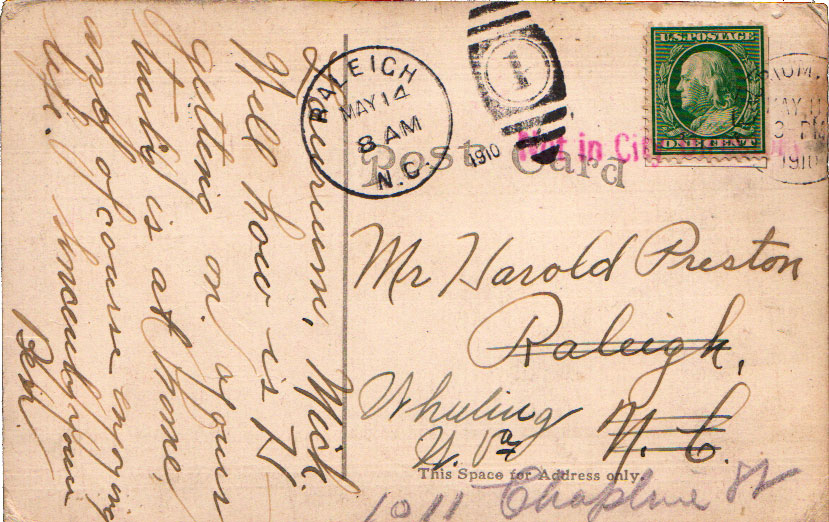 Laurium, Mich.
Well how is H.
getting on. yours
truly is at home,
and of course enjoying
life.
Innocently your
Ben
RALEIGH
MAY 14
8 AM
1910
N.C.
1
U.S. POSTAGE
ONE CENT
RIUM,
MAY
3 PM
1910
Post Card
Not in Ci
Mr Harold Preston
Raleigh,
N. C.
Wheeling
W. Va
This Space for Address only.
1011 Chapline St